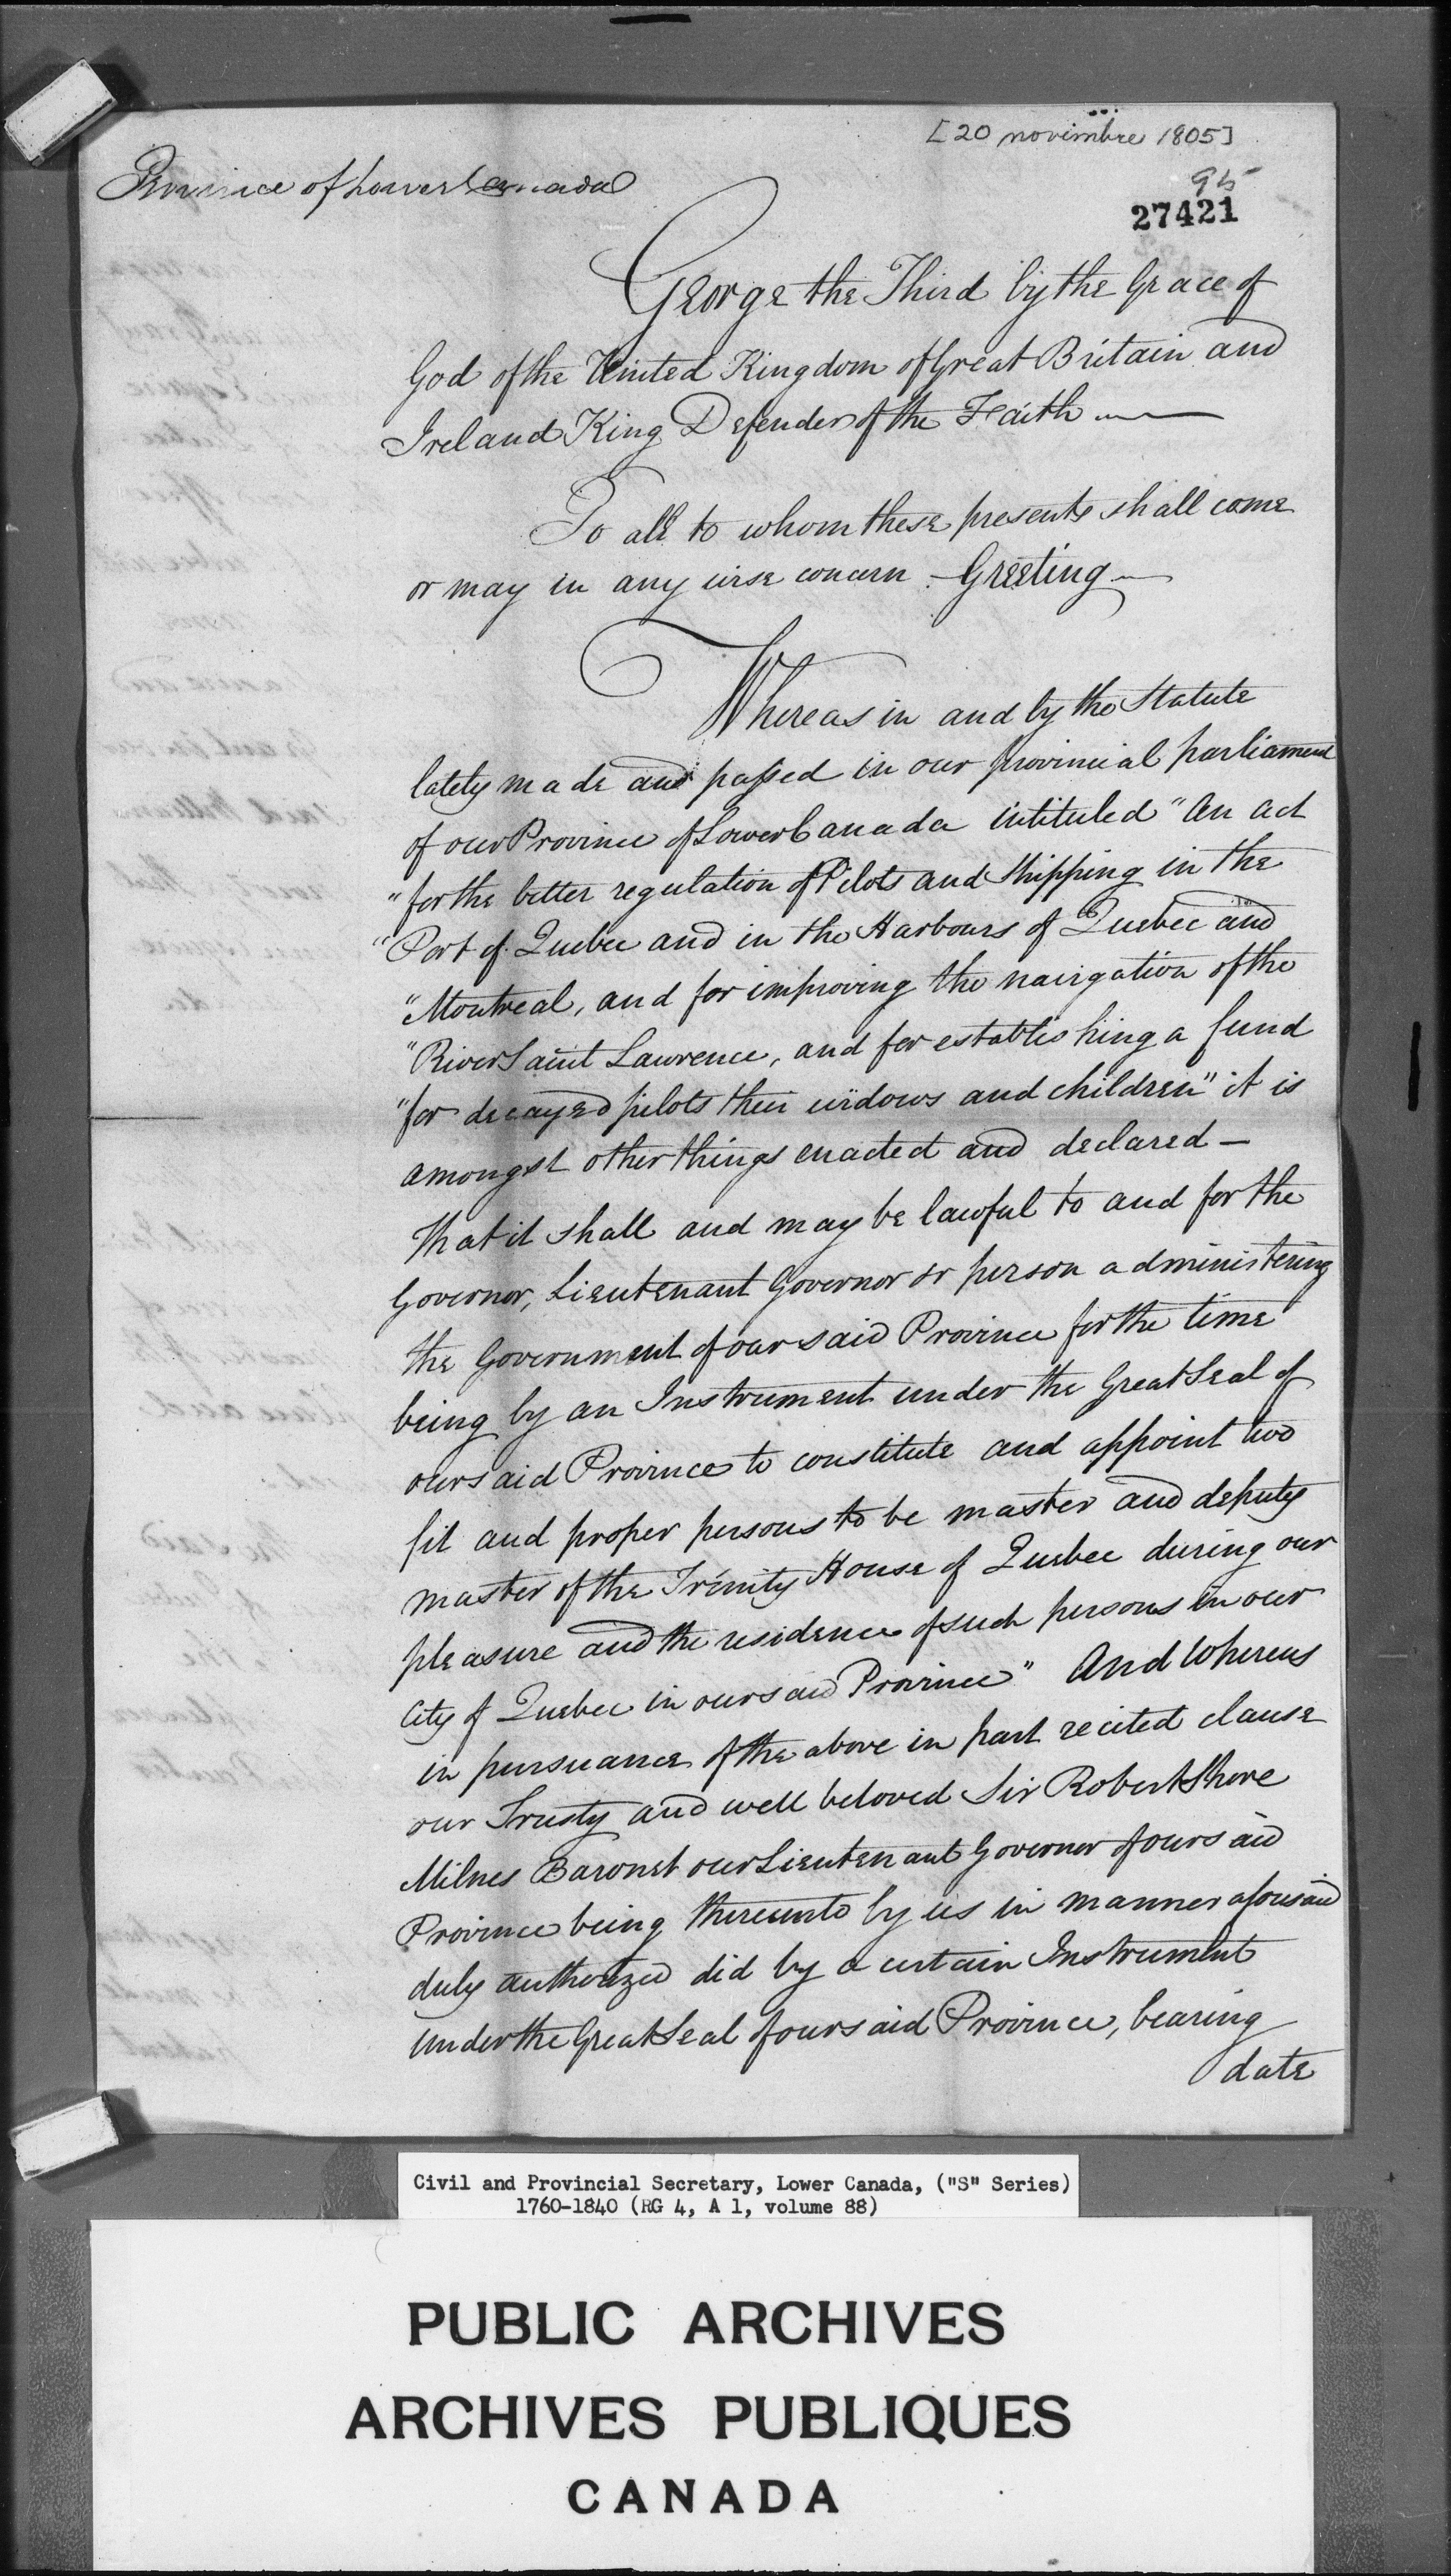 [20 novembre 1805]
95
27421
Province of Lower Canada
George the Third by the Grace of
God of the United Kingdom of Great Britain and
Ireland King Defender of the Faith
To all to whom these presents shall come
or may in any wise concern - Greeting
Whereas in and by the Statute
lately made and passed in our provincial parliament
of our Province of Lower Canada intituled "An Act
"for the better regulation of Pilots and Shipping in the
"Port of Quebec and in the Harbours of Quebec and
"Montreal, and for improving the navigation of the
"River Saint Lawrence, and for establishing a fund
"for decayed pilots their widows and children" it is
amongst other things enacted and declared —
That it shall and may be lawful to and for the
Governor, Lieutenant Governor or person administering
the Government of our said Province for the time
being by an Instrument under the Great Seal of
our said Province to constitute and appoint two
fit and proper persons to be master and deputy
master of the Trinity House of Quebec during our
pleasure and the residence of such persons in our
City of Quebec in our said Province" And Whereas
in pursuance of the above in part recited clause
our Trusty and well beloved Sir Robert Shore
Milnes Baronet our Lieutenant Governor of our said
Province being thereunto by us in manner aforesaid
duly authorized did by a certain Instrument
under the Great Seal of our said Province, bearing
date
Civil and Provincial Secretary, Lower Canada, ("S" Series)
1760-1840 (RG 4, A 1, volume 88)
PUBLIC ARCHIVES
ARCHIVES PUBLIQUES
CANADA